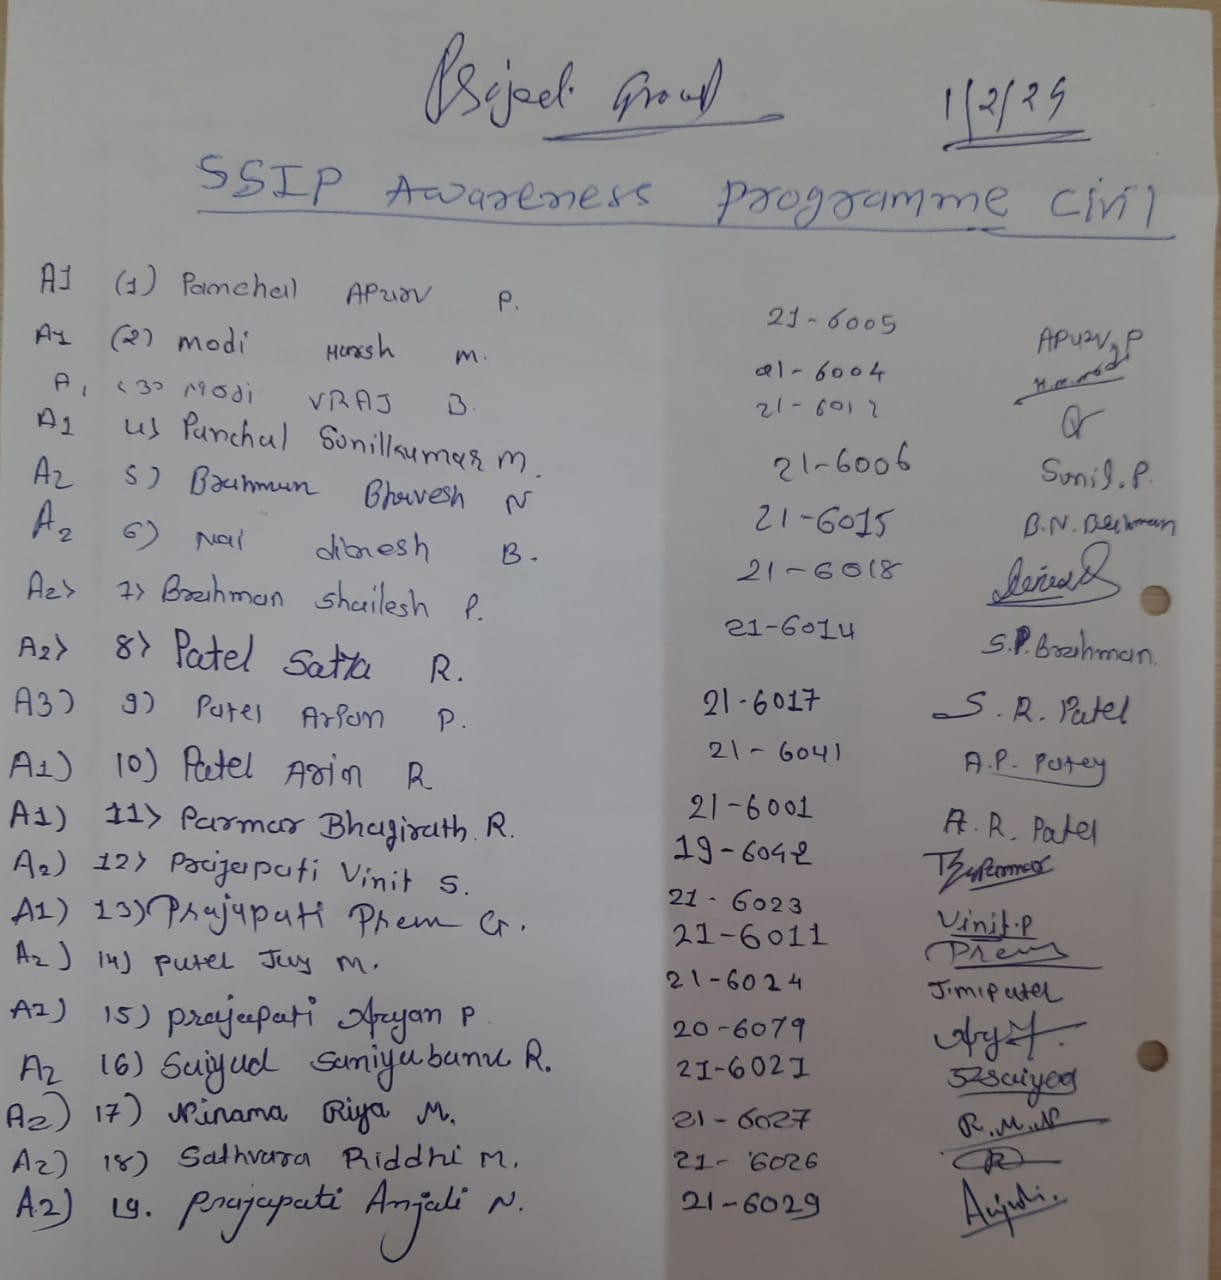 Project Group 1/2/24
SSIP Awareness programme civil
A1 (1) Panchal APURV P. 21-6005 APURV.P
A1 (2) modi Harsh m. 21-6004
A1 (3) Modi VRAJ B. 21-6012
A1 4) Panchal Sunilkumar m. 21-6006 Sunil.P.
A2 5) Brahman Bhavesh N 21-6015 B.N. Brahman
A2 6) Nai dinesh B. 21-6018
A2> 7> Brahman Shailesh P. 21-6014 S.P. Brahman.
A2> 8> Patel Satya R. 21-6017 S. R. Patel
A3) 9) Patel Arpan P. 21-6041 A.P. Patel
A1) 10) Patel Arin R 21-6001 A. R. Patel
A1) 11> Parmar Bhagirath R. 19-6042
A2) 12> Prajapati Vinit S. 21-6023 Vinit.P
A1) 13) Prajapati Prem G. 21-6011 Prem
A2) 14) Patel Jay M. 21-6024 J.m.patel
A2) 15) prajapati Aryan P 20-6079
A2 16) Saiyad Saniyabanu R. 21-6021
A2) 17) Ninama Riya M. 21-6027 R.M.N
A2) 18) Sathvara Riddhi M. 21-6026
A2) 19. Prajapati Anjali N. 21-6029 Anjali.